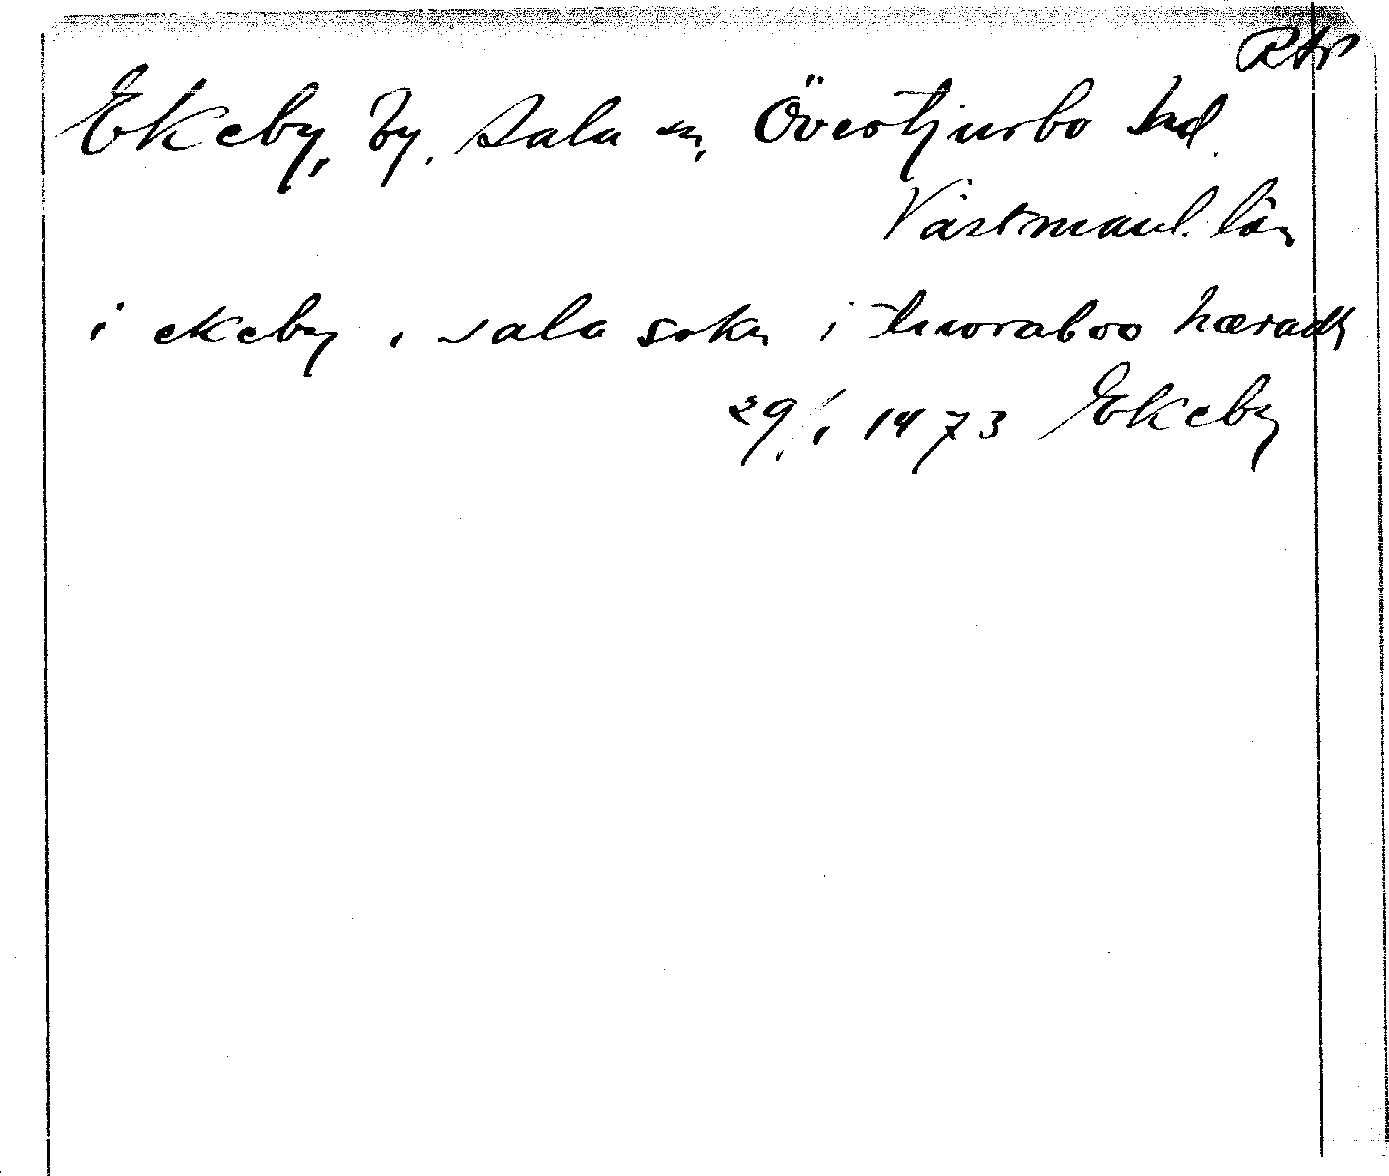 Ekeby, by, Sala sn, Övertjurbo hd.
Västmanl. län
i ekeby i sala sokn i tiuraboo hæradh
29/1 1473 Ekeby